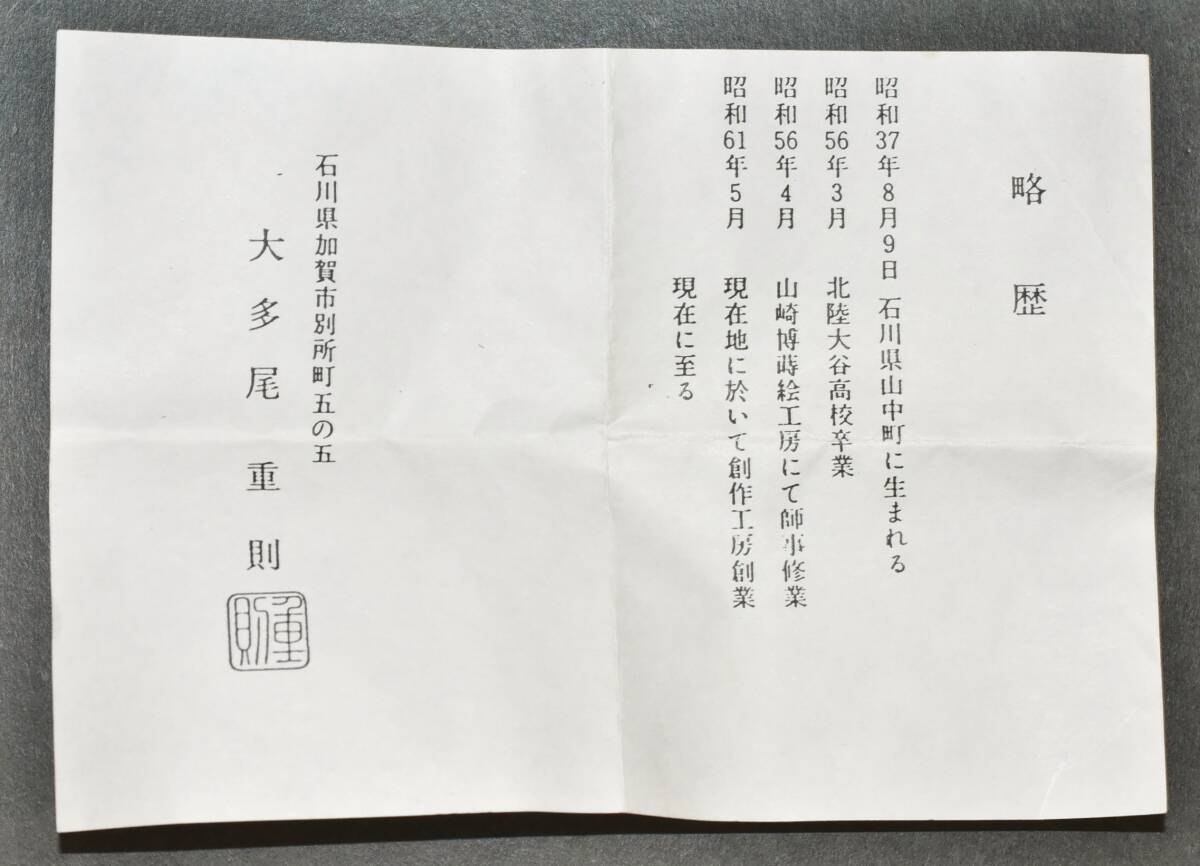 略歴
昭和37年8月9日 石川県山中町に生まれる
昭和56年3月 北陸大谷高校卒業
昭和56年4月 山崎博蒔絵工房にて師事修業
昭和61年5月 現在地に於いて創作工房創業
現在に至る
石川県加賀市別所町五の五
大多尾重則
重則